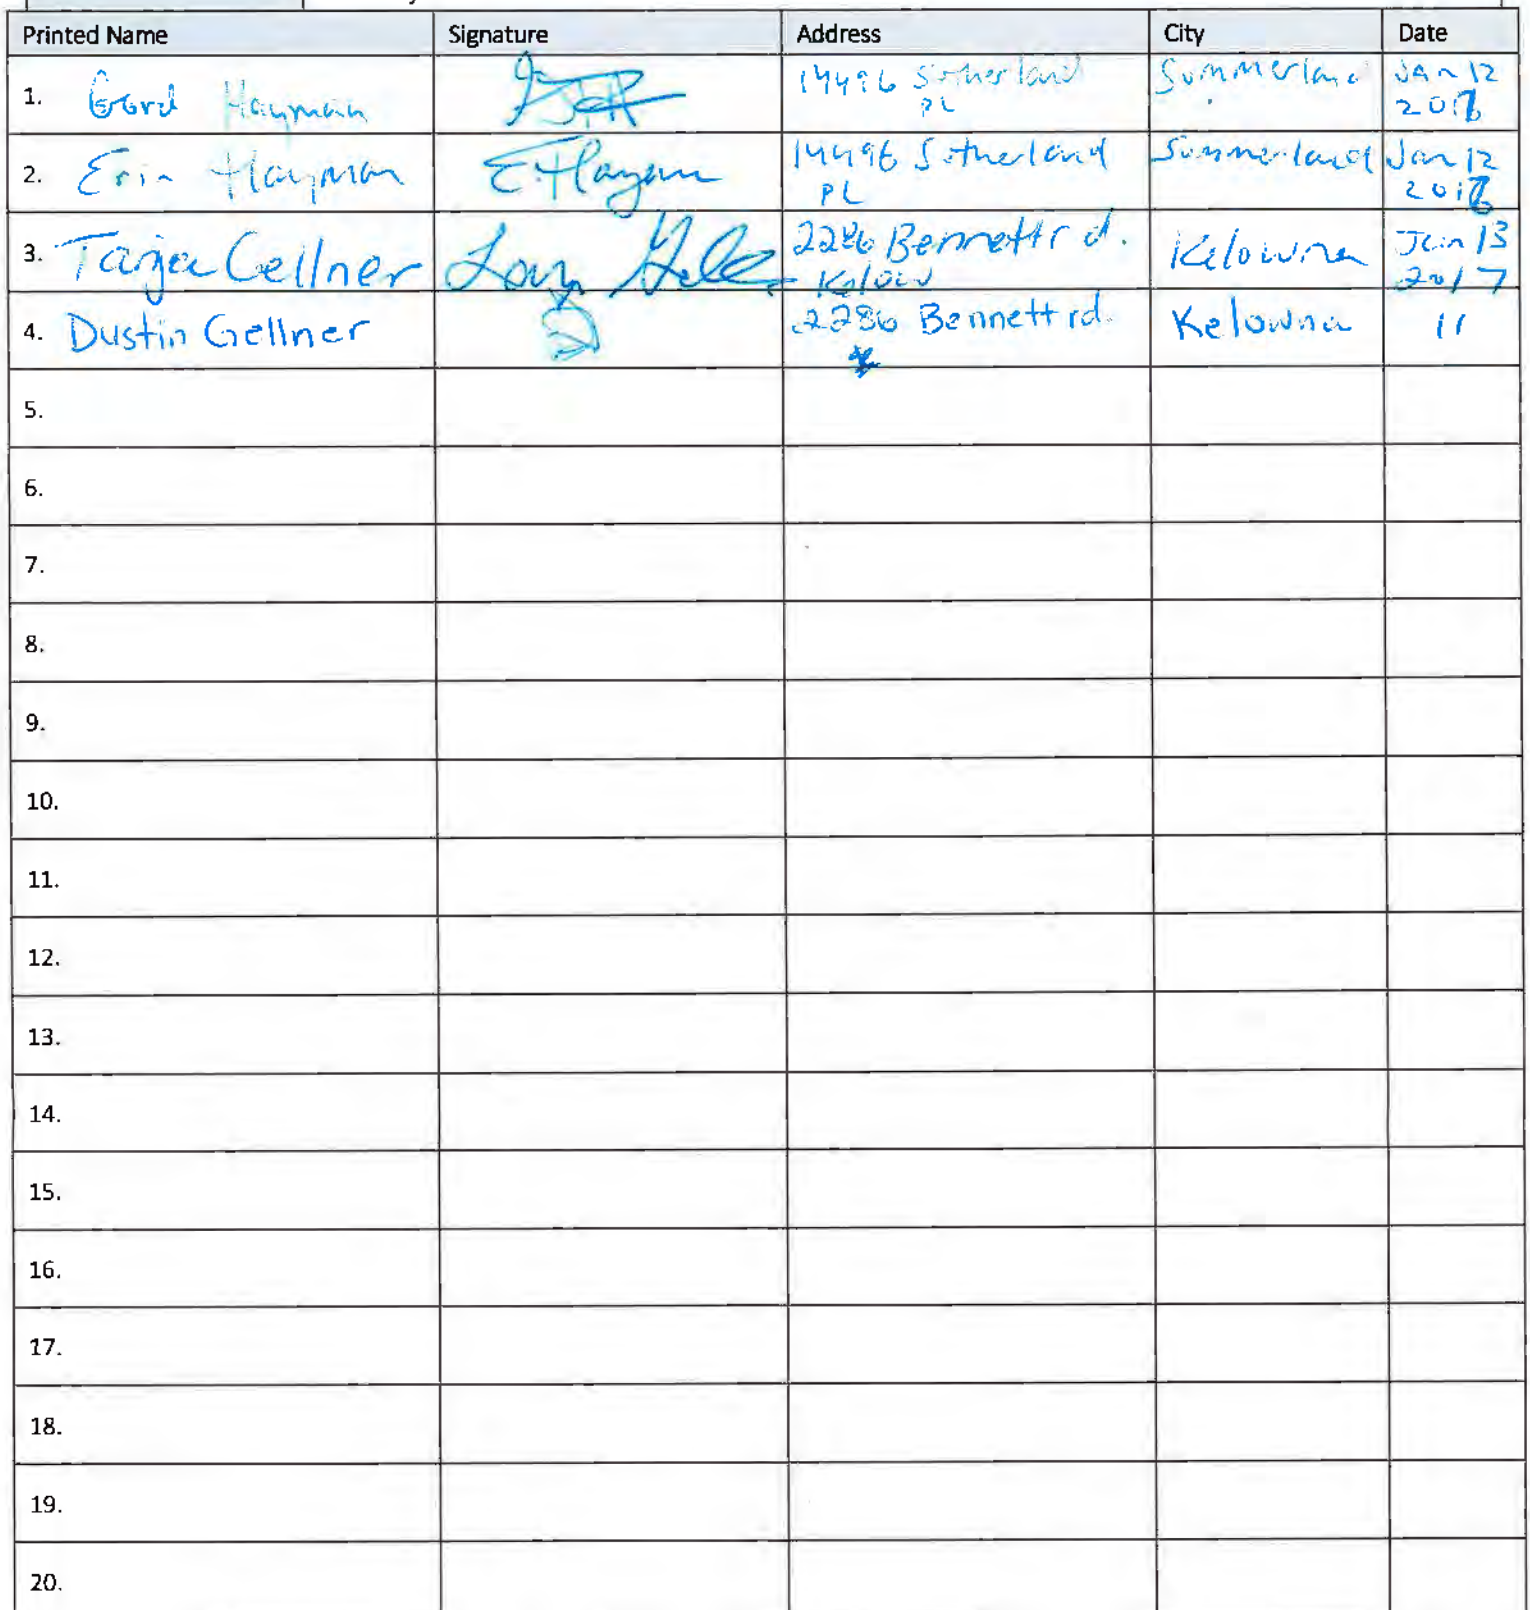 Printed Name Signature Address City Date
1. Gord Hayman 14496 Sutherland Summerland Jan 12
PL 2017
2. Erin Hayman E Hayman 14496 Sutherland Summerland Jan 12
PL 2017
3. Tanja Gellner 2286 Bennett rd. Kelowna Jan 13
Kelow 2017
4. Dustin Gellner 2286 Bennett rd. Kelowna 11
5.
6.
7.
8.
9.
10.
11.
12.
13.
14.
15.
16.
17.
18.
19.
20.